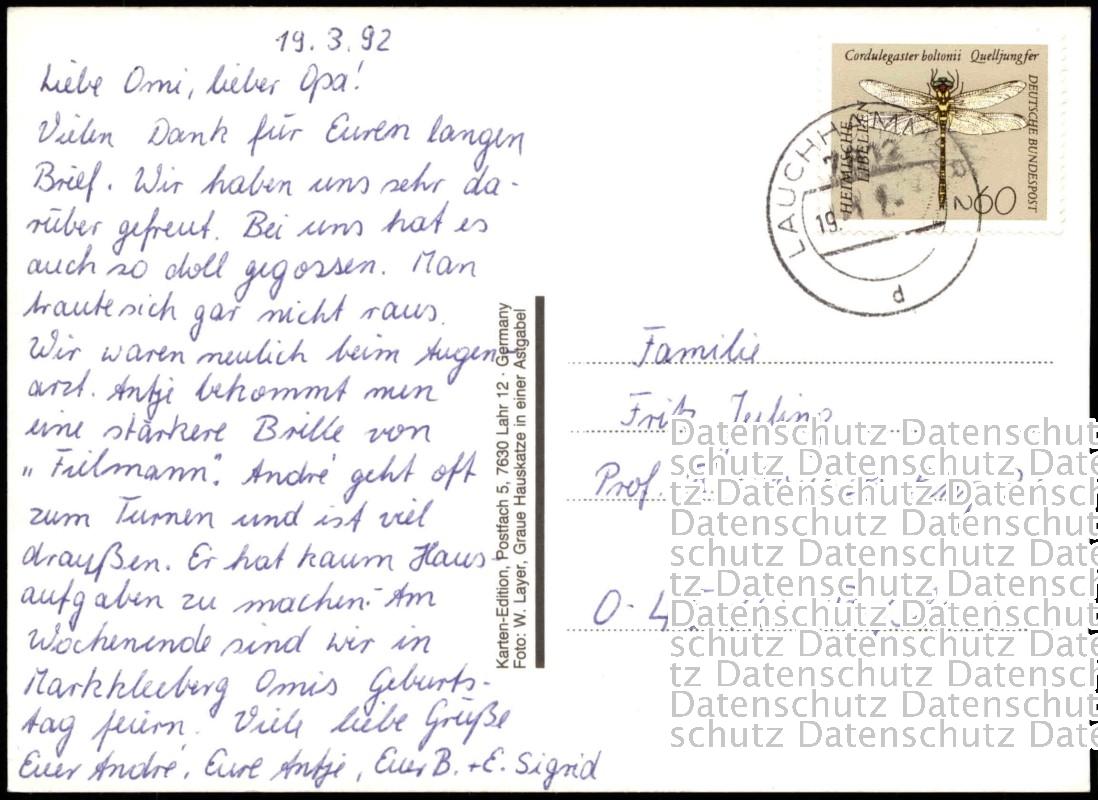 19.3.92
Liebe Omi, lieber Opa!
Vielen Dank für Euren langen
Brief. Wir haben uns sehr da-
rüber gefreut. Bei uns hat es
auch so doll gegossen. Man
traute sich gar nicht raus.
Wir waren neulich beim Augen-
arzt. Antje bekommt nun
eine stärkere Brille von
„Fielmann“. André geht oft
zum Turnen und ist viel
draußen. Er hat kaum Haus-
aufgaben zu machen. Am
Wochenende sind wir in
Markkleeberg Omis Geburts-
tag feiern. Viele liebe Grüße
Euer André, Eure Antje, Euer B. + E. Sigrid
Karten-Edition, Postfach 5, 7630 Lahr 12 · Germany
Foto: W. Layer, Graue Hauskatze in einer Astgabel
Cordulegaster boltonii Quelljungfer
HEIMISCHE
LIBELLEN
DEUTSCHE BUNDESPOST
60
LAUCHHAMMER 2
19.
d
Familie
Fritz
Prof.
O-4
Datenschutz Datenschut
schutz Datenschutz Date
tz Datenschutz Datensch
Datenschutz Datenschutz
schutz Datenschutz Date
tz Datenschutz Datensch
Datenschutz Datenschut
schutz Datenschutz Date
tz Datenschutz Datensch
Datenschutz Datenschut
schutz Datenschutz Date